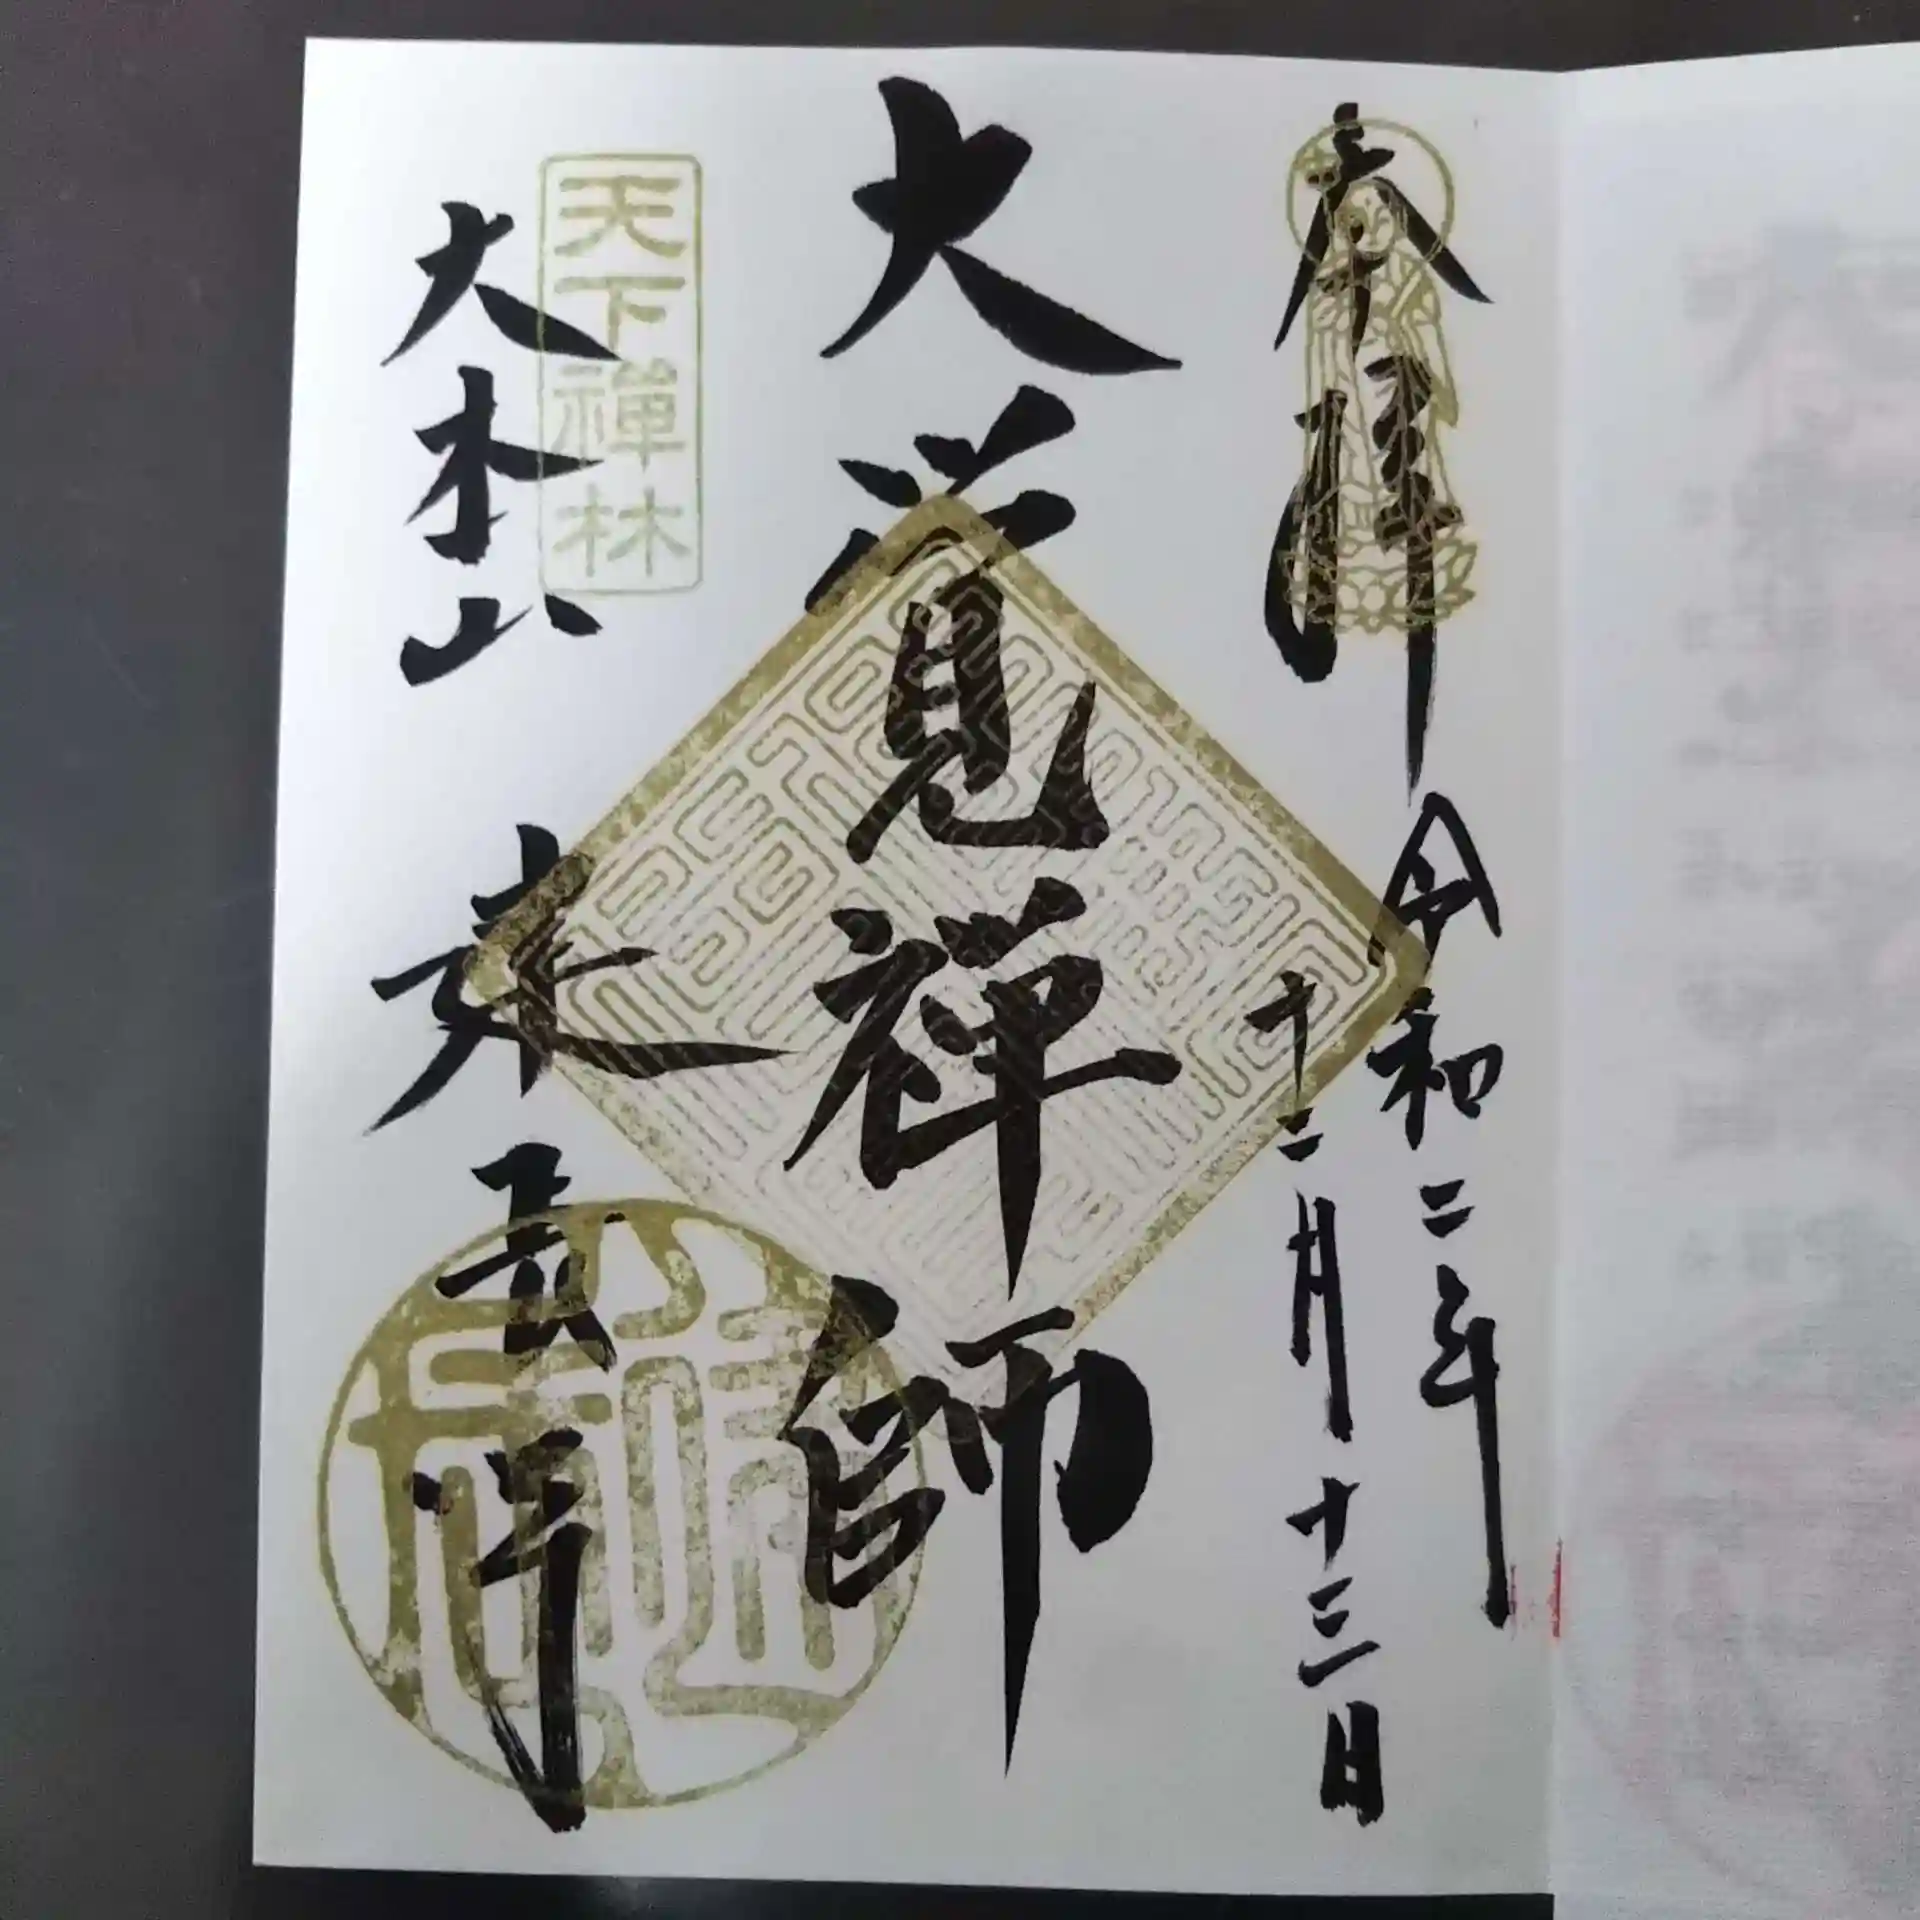 奉拝
令和二年
十二月十三日
大覚禅師
天下禪林
大本山
建長寺